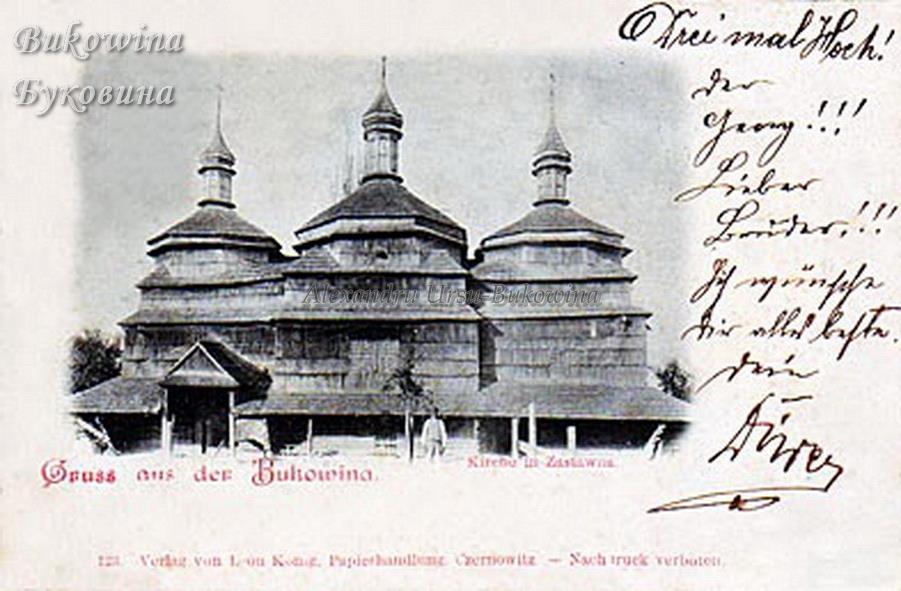 Bukowina
Буковина
Drei mal Hoch!
der
Georg!!!
Lieber
Bruder!!!
Ich wünsche
Dir alles beste.
dein
Alexandru Ursu-Bukowina
Gruss aus der Bukowina.
Kirche in Zastawna.
123. Verlag von Leon König, Papierhandlung Czernowitz — Nachdruck verboten.